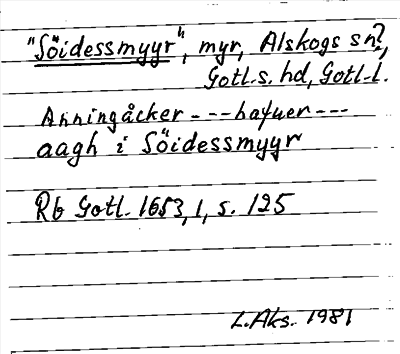 "Söidessmyyr", myr, Alskogs sn?,
Gotl.s. hd, Gotl.l.
Anningåcker - - - hafuer - - -
aagh i Söidessmyyr
Rb Gotl. 1653, 1, s. 125
L. Aks. 1981